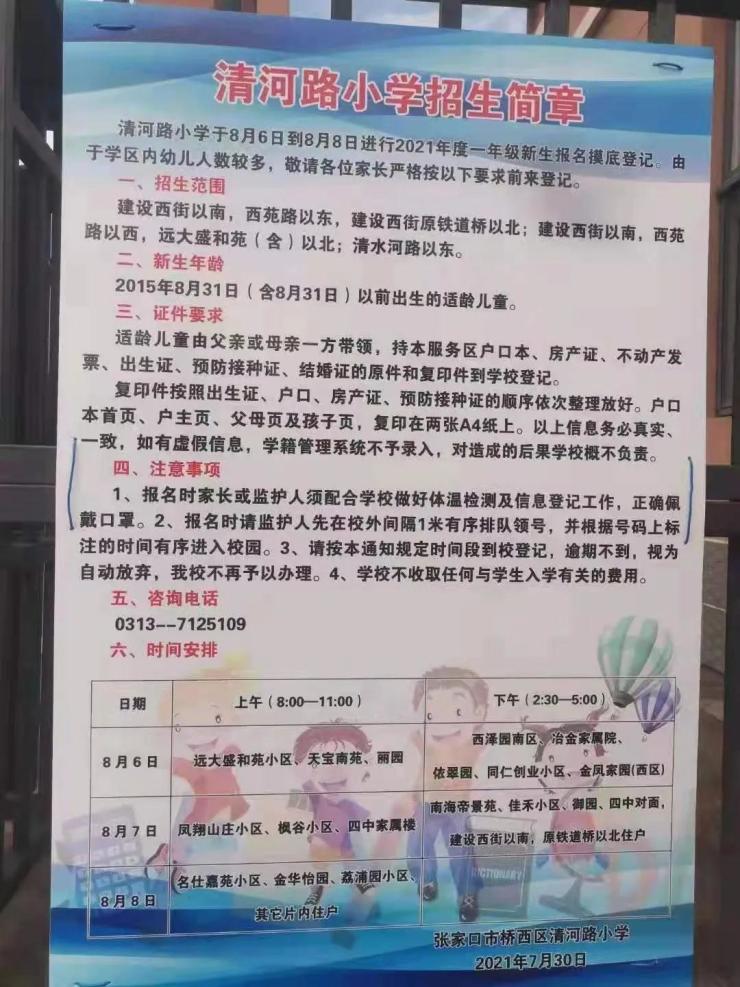 清河路小学招生简章
清河路小学于8月6日到8月8日进行2021年度一年级新生报名摸底登记。由
于学区内幼儿人数较多，敬请各位家长严格按以下要求前来登记。
一、招生范围
建设西街以南，西苑路以东，建设西街原铁道桥以北；建设西街以南，西苑
路以西，远大盛和苑（含）以北；清水河路以东。
二、新生年龄
2015年8月31日（含8月31日）以前出生的适龄儿童。
三、证件要求
适龄儿童由父亲或母亲一方带领，持本服务区户口本、房产证、不动产发
票、出生证、预防接种证、结婚证的原件和复印件到学校登记。
复印件按照出生证、户口、房产证、预防接种证的顺序依次整理放好。户口
本首页、户主页、父母页及孩子页，复印在两张A4纸上。以上信息务必真实、
一致，如有虚假信息，学籍管理系统不予录入，对造成的后果学校概不负责。
四、注意事项
1、报名时家长或监护人须配合学校做好体温检测及信息登记工作，正确佩
戴口罩。2、报名时请监护人先在校外间隔1米有序排队领号，并根据号码上标
注的时间有序进入校园。3、请按本通知规定时间段到校登记，逾期不到，视为
自动放弃，我校不再予以办理。4、学校不收取任何与学生入学有关的费用。
五、咨询电话
0313--7125109
六、时间安排
日期 上午（8:00—11:00） 下午（2:30—5:00）
8月6日 远大盛和苑小区、天宝南苑、丽园 西泽园南区、冶金家属院、
依翠园、同仁创业小区、金凤家园(西区)
8月7日 凤翔山庄小区、枫谷小区、四中家属楼 南海帝景苑、佳禾小区、御园、四中对面，
建设西街以南，原铁道桥以北住户
8月8日 名仕嘉苑小区、金华怡园、荔浦园小区、
其它片内住户
DICTIONARY
张家口市桥西区清河路小学
2021年7月30日